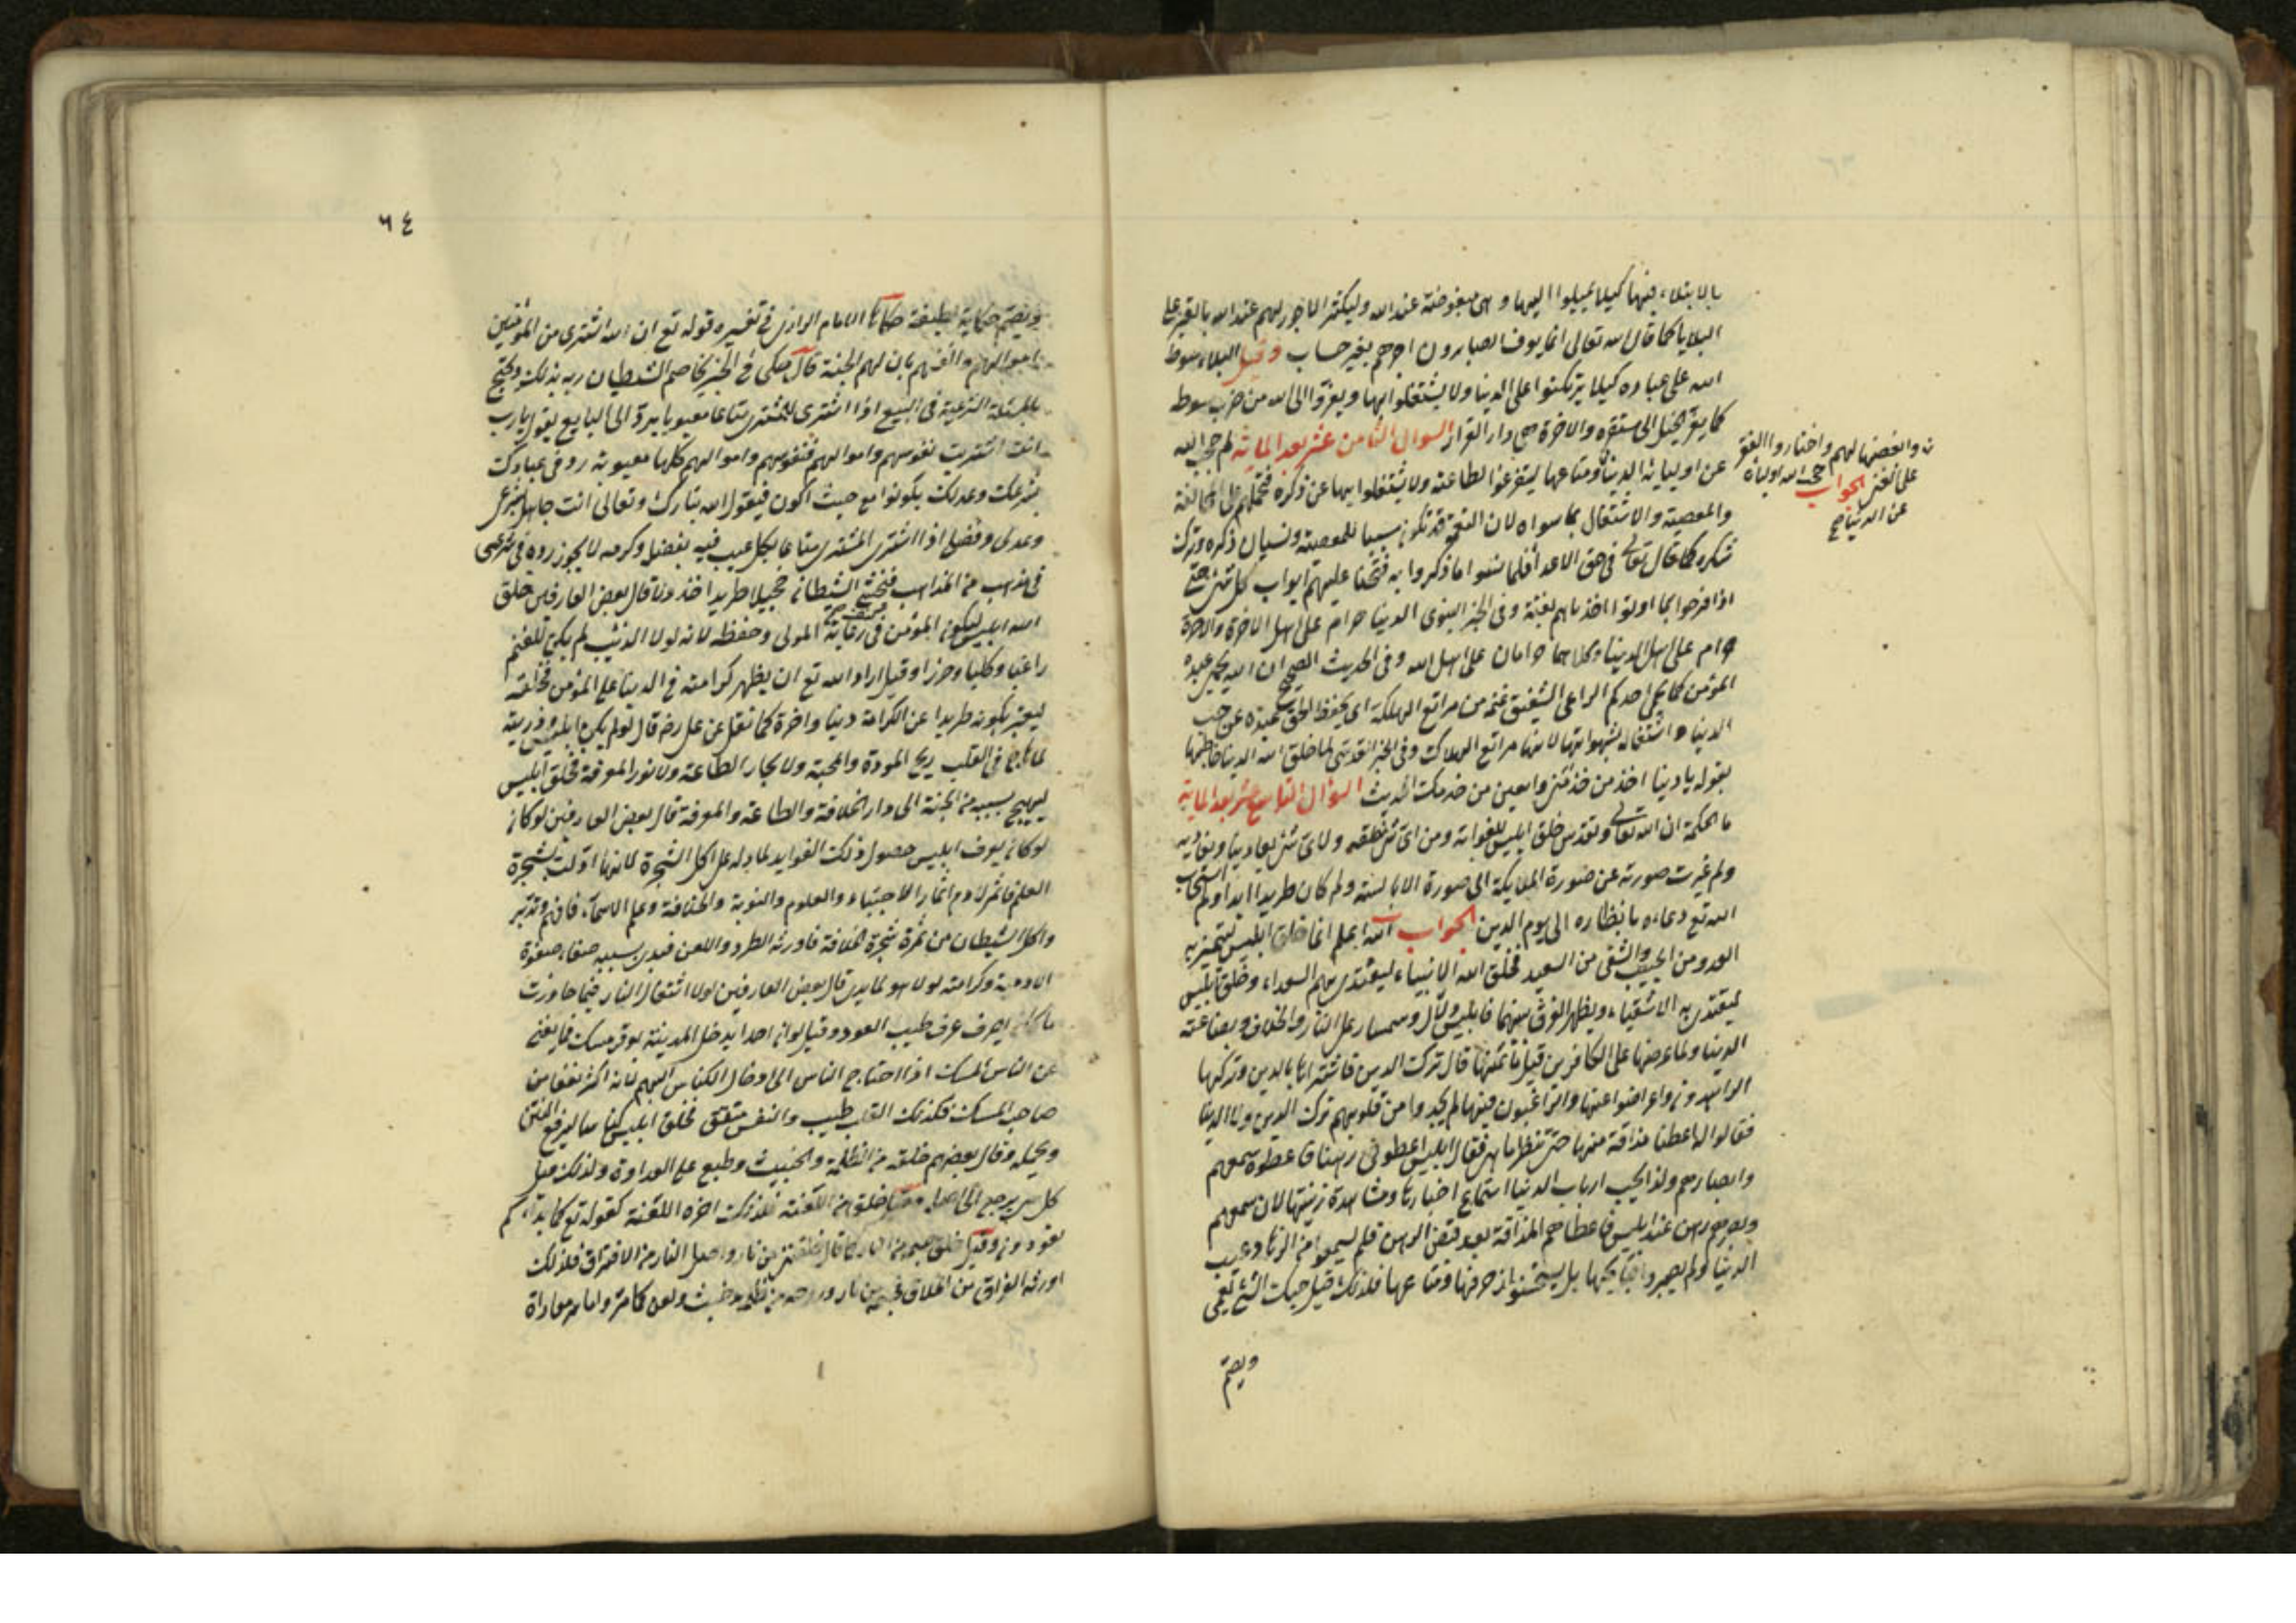 بالابتلاء فيها كيلا يميلوا اليها وهى مبغوضة عند الله وليكثر الاجور لهم عند الله بالصبر على
البلايا كما قال الله تعالى انما يوف الصابرون اجرهم بغير حساب وقيل البلاء سوط
الله على عباده كيلا يركنوا على الدنيا ولا يشتغلوا بها ويفروا الى الله من ضرب سوطه
كما يفر الخيل الى مستقره والاخرة هى دار القرار السوال الثامن عشر بعد الماية لم حمى الله
عن اوليايه الدنيا ومتاعها ليتفرغوا لطاعته ولا يشتغلوا بها عن ذكره فتحملهم على المخالفة
والمعصية والاشتغال بما سواه لان النعمة قد تكون سببا للمعصية ونسيان ذكره وترك
شكره كما قال تعالى فى حق الاعداء فلما نسوا ما ذكروا به فتحنا عليهم ابواب كل شئ حتى
اذا فرحوا بما اوتوا اخذناهم بغتة وفى الخبر النبوى الدنيا حرام على اهل الاخرة والاخرة
حرام على اهل الدنيا وكلاهما حرامان على اهل الله وفى الحديث الصحيح ان الله يحمى عبده
المؤمن كما يحمى احدكم الراعى الشفيق غنمه من مراتع الهلكة اى يحفظ الحق عبده عن حب
الدنيا واشتغاله بشهواتها لانها مراتع الهلاك وفى الخبر القدسى لما خلق الله الدنيا خاطبها
بقوله يا دنيا اخدمى من خدمنى واتعبى من خدمك الحديث السؤال التاسع عشر بعد الماية
ما الحكمة ان الله تعالى وتقدس خلق ابليس للغواية ومن اى شئ خلقه ولاى شئ يعادينا ونعاديه
ولم غيرت صورته عن صورة الملايكة الى صورة الابالسة ولم كان طريدا ابدا ولم استجاب
الله تع دعاءه بانظاره الى يوم الدين الجواب الله اعلم انما خلق ابليس ليتميز به
العدو من الحبيب والشقى من السعيد فخلق الله الانبياء ليقتدى بهم السعداء وخلق ابليس
ليقتدى به الاشقياء ويظهر الفرق بينهما فابليس دلال وسمسار على النار والخلاف وبضاعته
الدنيا ولما عرضها على الكافرين قيل ما ثمنها قال ترك الدين فاشتراها بالدين وتركها
الزاهدون واعرضوا عنها والراغبون فيها لم يجدوا من قلوبهم ترك الدين ولا الدنيا
فقالوا له اعطنا مذاقة منها حتى ننظر ما هى فقال ابليس اعطونى رهنا فاعطوه سمعهم
وابصارهم ولذا يحب ارباب الدنيا استماع اخبارها ومشاهدة زينتها لان سمعهم
وبصرهم رهن عند ابليس فاعطاهم المذاقة بعد قبض الرهن فلم يسمعوا من الزهاد عيب
الدنيا ولم يبصروا قبايحها بل يستحسنون زخرفها ومتاعها فلذلك قيل حبك الشئ يعمى
ويصم
وابغضها لهم واختاروا الفقر
على الغنى الجواب حمى الله اولياءه
عن الدنيا صح
٦٤
ويصم حكاية لطيفة حكاها الامام الرازى فى تفسيره قوله تع ان الله اشترى من المؤمنين
اموالهم وانفسهم بان لهم الجنة قال حكى فى الخبر يخاصم الشيطان ربه بذلك ويحتج
بالمسئلة الشرعية فى البيع اذا اشترى المشترى متاعا معيوبا يرد الى البايع يقول يا رب
انت اشتريت نفوسهم واموالهم فنفوسهم واموالهم كلها معيوبة رد فى عبادك
بشرعك وعدلك يكونوا مع حيث اكون فيقول الله تبارك وتعالى انت جاهل بشرعى
وعدلى وفضلى اذا اشترى المشترى متاعا بكل عيب فيه بفضله وكرمه لا يجوز رده فى شرعى
فى مذهب من المذاهب فيخنس الشيطان خجيلا طريدا وقال بعض العارفين خلق
الله ابليس ليكون المؤمن فى رعاية المولى وحفظه لانه لولا الذئب لم يكن للغنم
راعيا وكلبا وحرزا وقيل اراد الله تع ان يظهر كرامته فى الدنيا على المؤمن فخلقه
ليعتبر بكونه طريدا عن الكرامة دنيا واخرة كما نقل عن على رضه قال لو لم يكن ابليس وذريته
لما هاج فى القلب ريح المودة والمحبة ولا بحار الطاعة ولا نور المعرفة فخلق ابليس
ليهيج بسببه من الجنة الى دار الخلافة والطاعة والمعرفة قال بعض العارفين لو كان
لو كان يعرف ابليس حصول ذلك الفوايد لما دله على اكل الشجرة لانها اولت بشجرة
العلم فاثمر لادم اثمار الاجتباء والعلوم والنبوة والخلافة وعلم الاسماء فافهم وتدبر
واكل الشيطان من ثمرة شجرة الخلافة فاورثه الطرد واللعن فبدن بسببه صفاء صفوة
الادمية وكرامته لولا هو لما بدى قال بعض العارفين لولا اشتعال النار فيما جاورت
ما كان يعرف عرف طيب العود وقيل لو ان احدا يدخل المدينة بوقر مسك فما يغنى
عن الناس المسك اذا احتاج الناس الى ادخال الكناس اليهم لانه اكثر نفعا من
صاحب المسك فكذلك القلب طيب والنفس متعفن فخلق ابليس كناسا ليرفع النتن
ويحمله وقال بعضهم خلقه من الظلمة والخبيث وطبع على العداوة ولذلك قيل
كل شئ يرجع الى اصله وقيل خلق من اللعنة فلذلك اخره اللعنة كقوله تع كما بداكم
تعودون وقيل خلق جسمه من النار كما قال خلقتنى من نار واصل النار من الافتراق فلذلك
اورثه الفراق من اخلاق